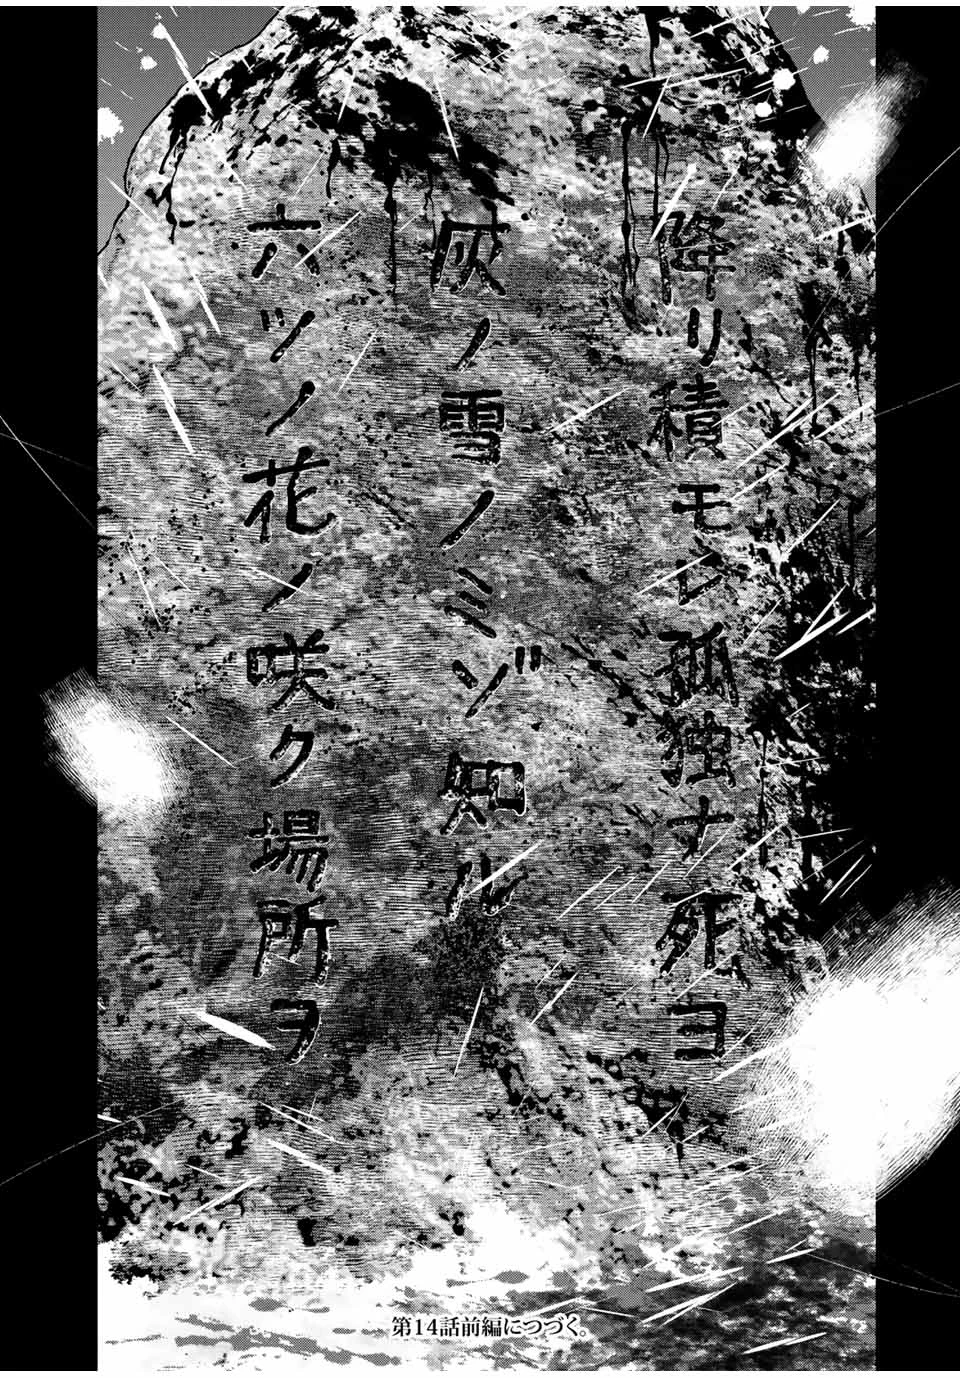 降リ積モレ孤独ナ死ヨ
灰ノ雪ノミゾ知ル
六ツノ花ノ咲ク場所ヲ
第14話前編につづく。